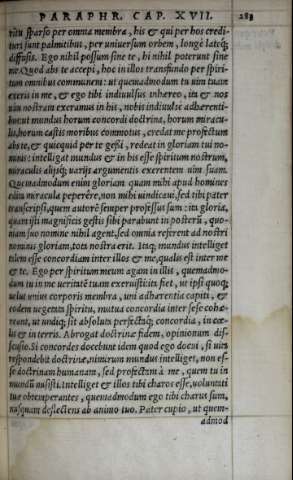 PARAPHR. CAP. XVII. 283
ritu sparso per omnia membra, his & qui per hos credi-
turi sunt palmitibus, per uniuersum orbem, longe lateq;
diffusis. Ego nihil possum sine te, hi nihil poterunt sine
me. Quod abs te accepi, hoc in illos transfundo per spiri-
tum omnibus communem: ut quemadmodum tu uim tuam
exeris in me, & ego tibi indiuulsus inhæreo, ita & nos
uim nostram exeramus in his, nobis indiuulse adhærenti-
bus: ut mundus horum concordi doctrina, horum miracu-
lis, horum castis moribus commotus, credat me profectum
abs te, & quicquid per te gessi, redeat in gloriam tui no-
minis: intelligat mundus & in his esse spiritum nostrum,
miraculis alijsq; uarijs argumentis exerentem uim suam.
Quemadmodum enim gloriam quam mihi apud homines
edita miracula peperêre, non mihi uindicaui, sed tibi pater
transcripsi, quem autorē semper professus sum: ita gloria,
quam isti magnificis gestis sibi parabunt in posterū, quo-
niam suo nomine nihil agent, sed omnia referent ad nostri
nominis gloriam, tota nostra erit. Itaq; mundus intelliget
talem esse concordiam inter illos & me, qualis est inter me
& te. Ego per spiritum meum agam in illis, quemadmo-
dum tu in me ueritatē tuam exeruisti: ita fiet, ut ipsi quoq;
uelut unius corporis membra, uni adhærentia capiti, &
eodem uegetata spiritu, mutua concordia inter sese cohæ-
reant, ut undiq; sit absoluta perfectaq; concordia, in cœ-
lis & in terris. Abrogat doctrinæ fidem, opinionum dis-
sensio. Si concordes docebunt idem quod ego docui, si uita
respondebit doctrinæ, nimirum mundus intelliget, non es-
se doctrinam humanam, sed profectam à me, quem tu in
mundū misisti. Intelliget & illos tibi charos esse, uoluntati
tuæ obtemperantes, quemadmodum ego tibi charus sum,
nusquam deflectens ab animo tuo. Pater cupio, ut quem-
admod